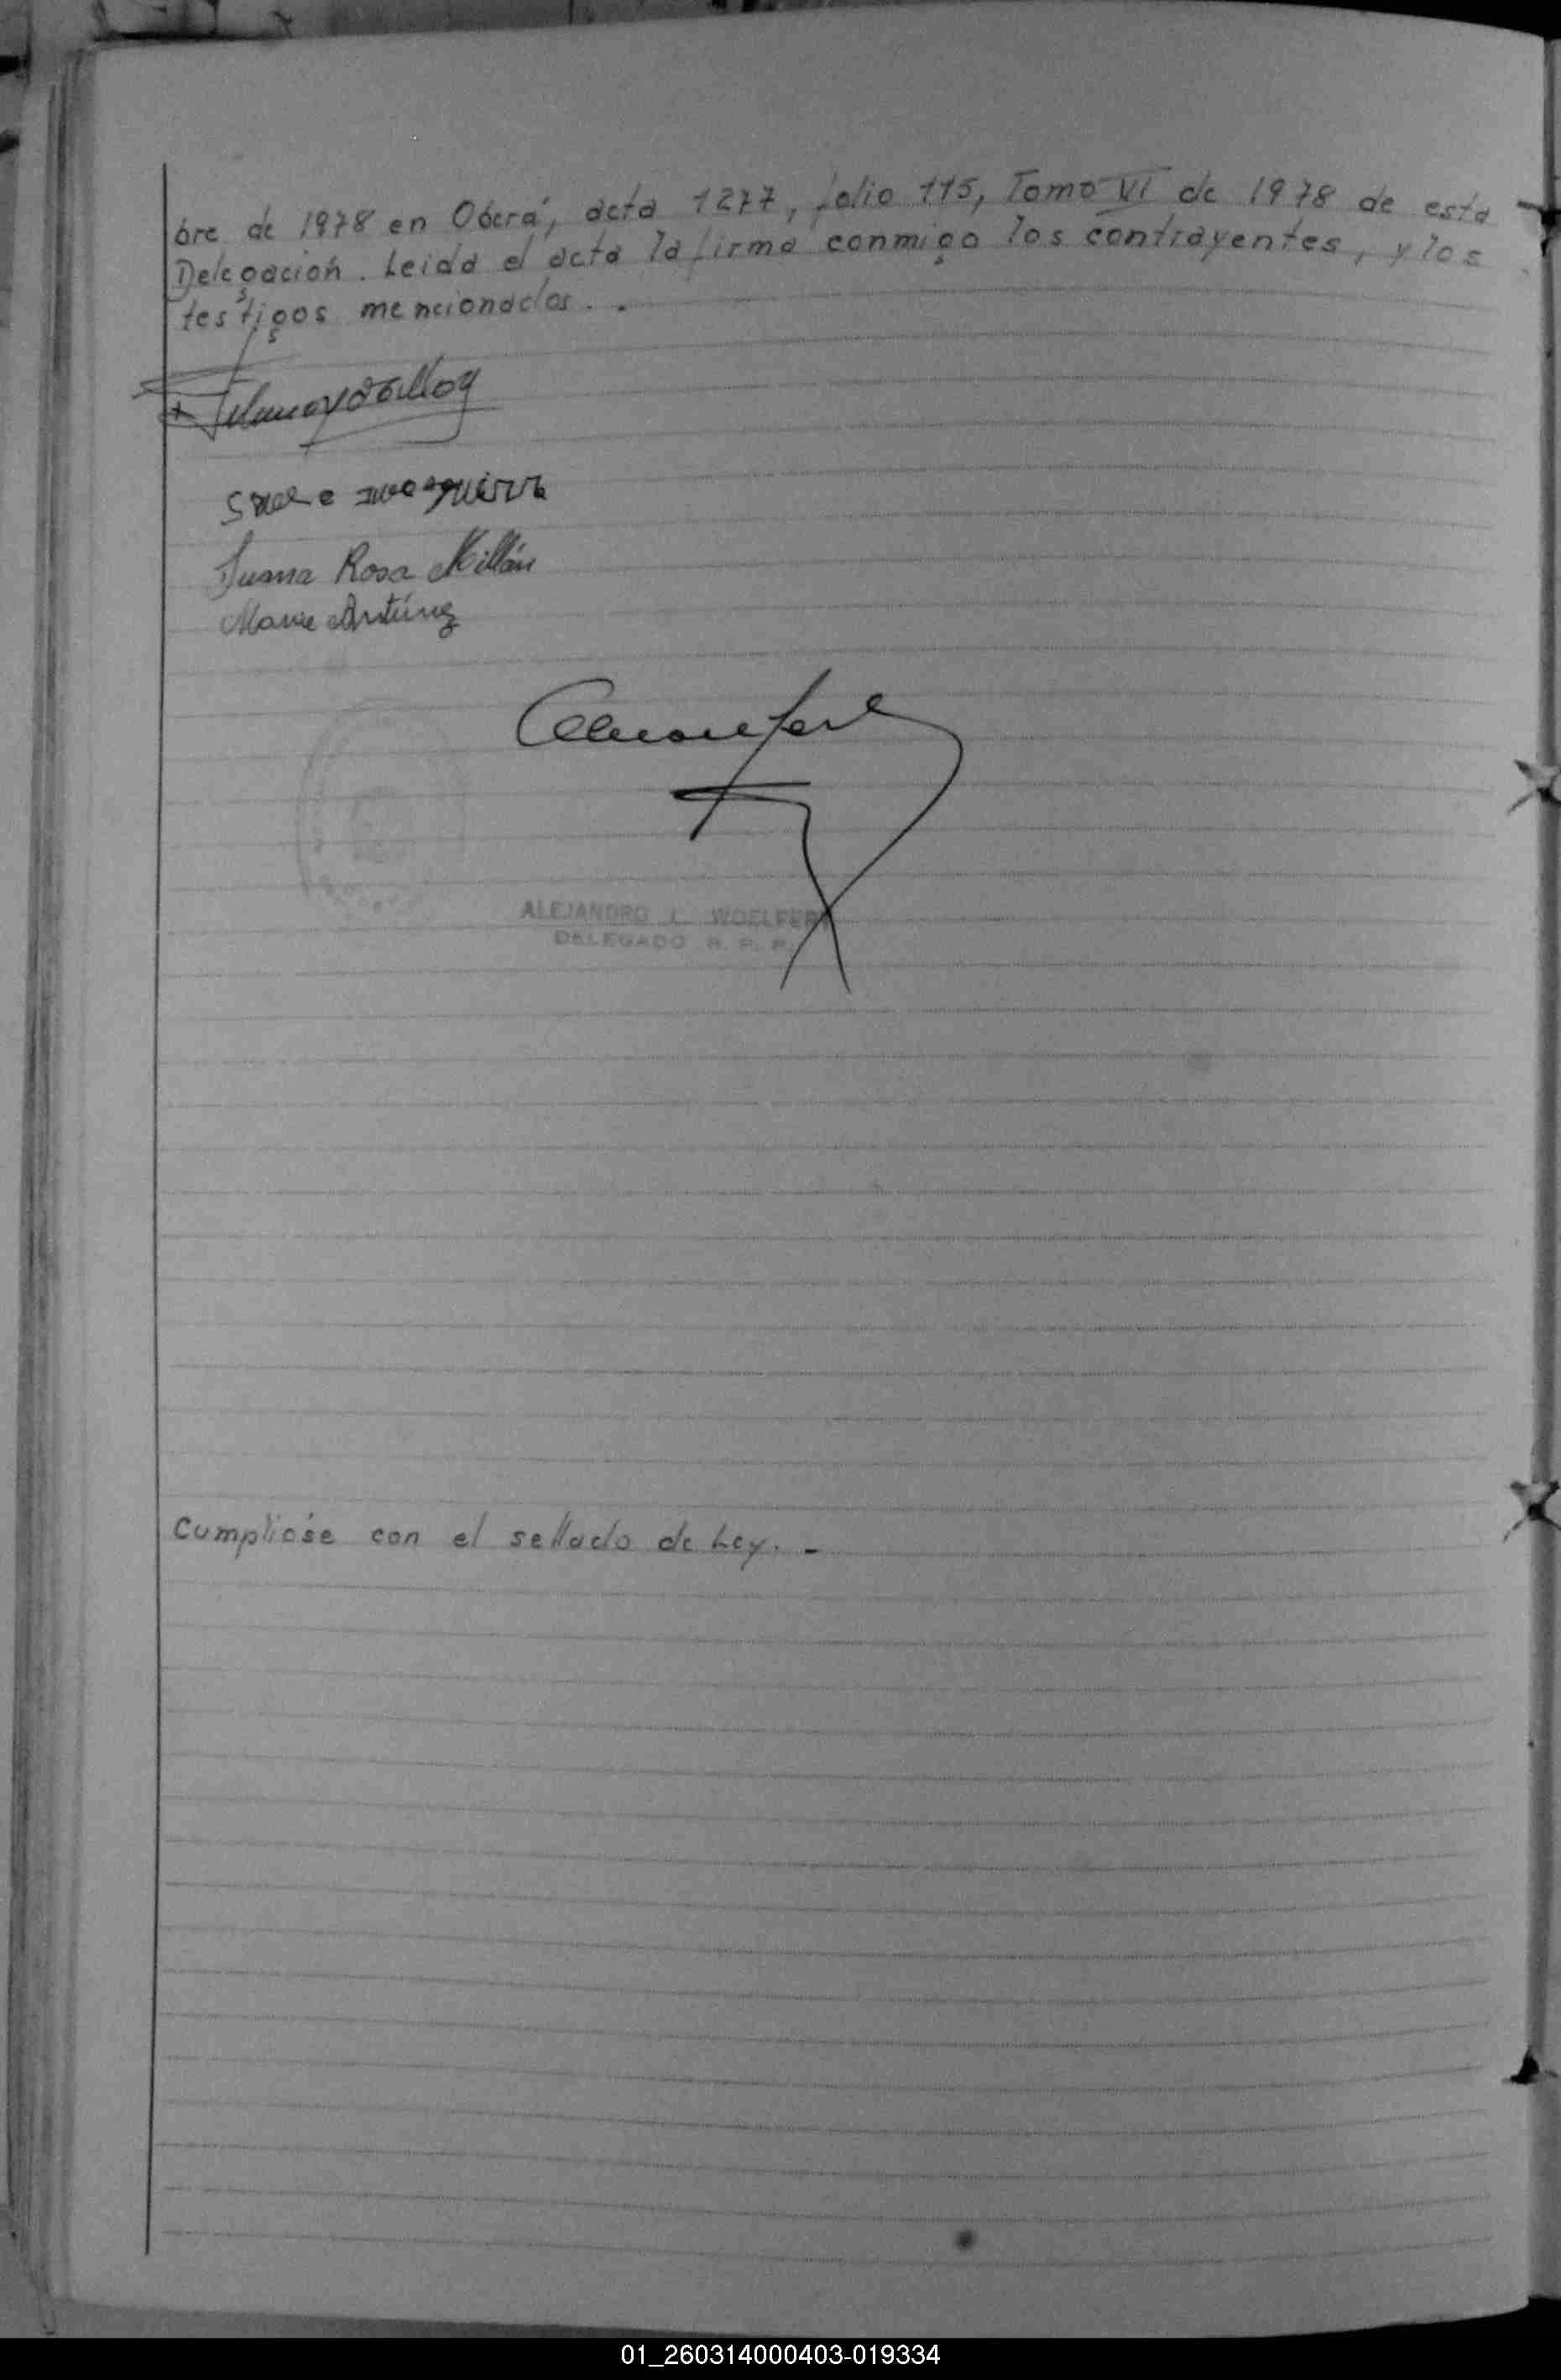 bre de 1978 en Oberá, acta 1277, folio 115, Tomo VI de 1978 de esta
Delegación. Leida el acta la firma conmigo los contrayentes, y los
testigos mencionados. .
Juana Rosa Millán
Antúnez
ALEJANDRO L. WOELFERT
DELEGADO R. P. P.
Cumplióse con el sellado de Ley. -
01_260314000403-019334